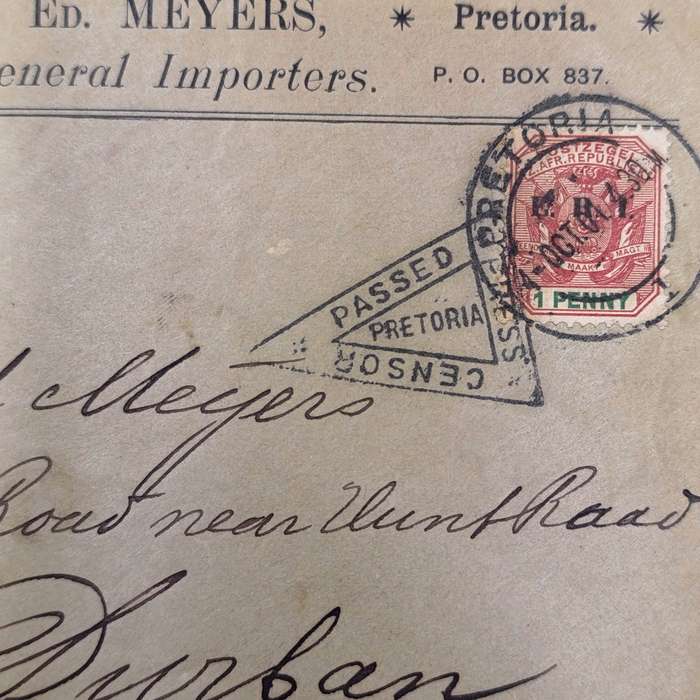 ED. MEYERS, * Pretoria. *
eneral Importers. P. O. BOX 837.
PRETORIA
OSTZEGEL
Z. AFR. REPUBL
E. R. I.
OCT. 01 4.30
MAAKT MAGT
1 PENNY
1
PASSED
PRETORIA
CENSOR
Meyers
Road near Hunt Road
Durban